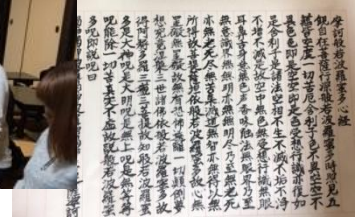 摩訶般若波羅蜜多心経
観自在菩薩行深般若波羅蜜多時照見五
蘊皆空度一切苦厄舎利子色不異空空不
異色色即是空空即是色受想行識亦復如
是舎利子是諸法空相不生不滅不垢不浄
不増不減是故空中無色無受想行識無眼
耳鼻舌身意無色声香味触法無眼界乃至
無意識界無無明亦無無明尽乃至無老死
亦無老死尽無苦集滅道無智亦無得以無
所得故菩提薩埵依般若波羅蜜多故心無
罣礙無罣礙故無有恐怖遠離一切顛倒夢
想究竟涅槃三世諸仏依般若波羅蜜多故
得阿耨多羅三藐三菩提故知般若波羅蜜
多是大神呪是大明呪是無上呪是無等等
呪能除一切苦真実不虚故説般若波羅蜜
多呪即説呪曰